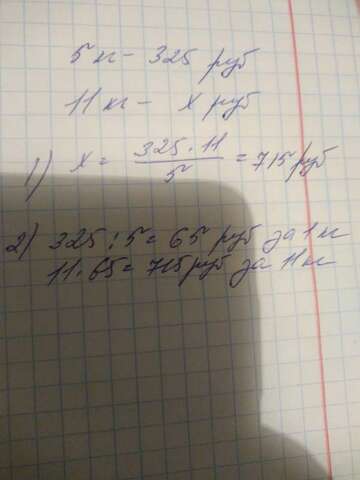 5 кг - 325 руб
11 кг - х руб
1) х = 325 · 11 / 5 = 715 руб
2) 325 : 5 = 65 руб за 1 кг
11 · 65 = 715 руб за 11 кг